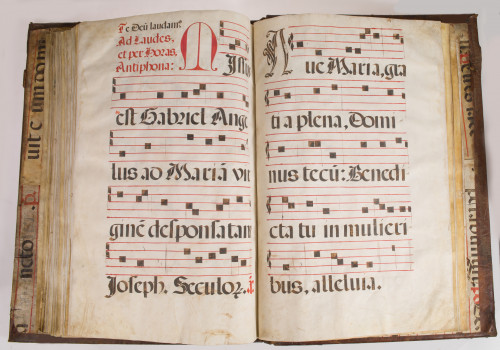 Te Deū laudam⁹
Ad Laudes,
et per Horas,
Antiphona:
Missus
est Gabriel Ange
lus ad Mariā vir
ginē desponsatam
Joseph. Seculoꝝ.
Aue Maria, gra
ti a plena, Domi
nus tecū: Benedi
cta tu in mulieri
bus, alleluia.